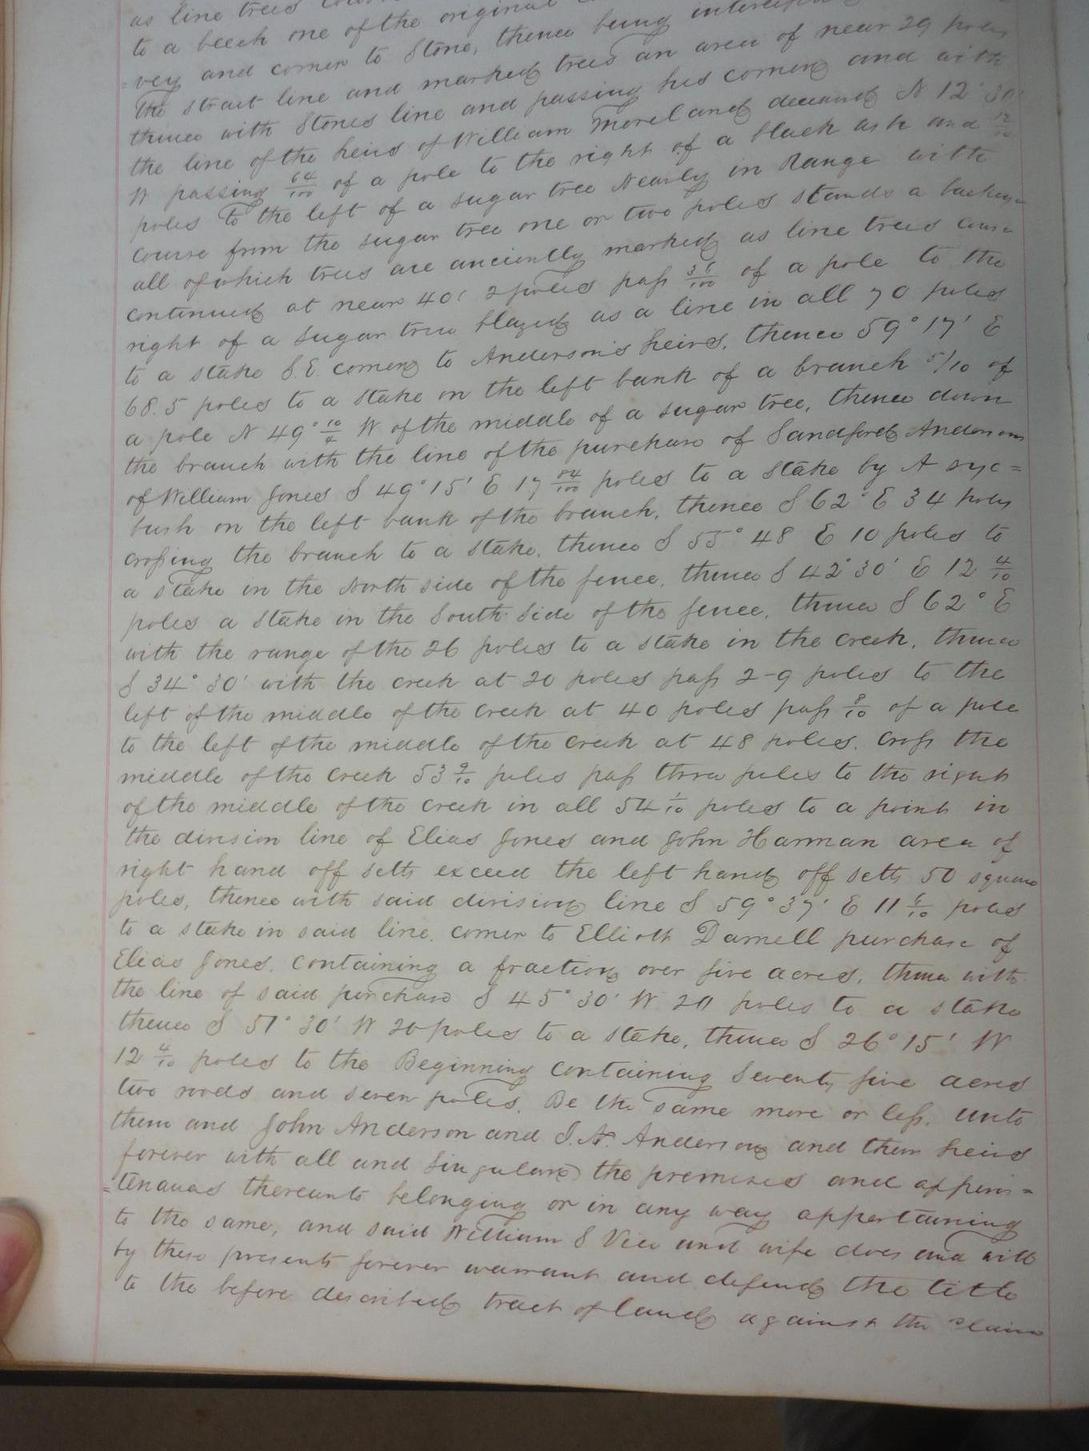 as line trees
to a beech one of the original
=vey and corner to Stone, thence being
the strait line and marked trees an area of near 29 poles
thence with Stones line and passing his corner and with
the line of the heirs of William Moreland deceased N 12° 30'
W passing 64/100 of a pole to the right of a black ash and
poles to the left of a sugar tree Nearly in Range with
course from the sugar tree one or two poles stands a
all of which trees are anciently marked as line trees
continued at near 40, 2 poles pass of a pole to the
right of a sugar tree blazed as a line in all 70 poles
to a stake S.E. corner to Anderson's heirs, thence 59° 17' E
68.5 poles to a stake on the left bank of a branch 5/10 of
a pole N 49° W of the middle of a sugar tree, thence down
the branch with the line of the purchase of Sandford Andersons
of William Jones S 49° 15' E 17 84/100 poles to a stake by A syc=
bush on the left bank of the branch, thence S 62° E 34 poles
crossing the branch to a stake, thence S 55° 48 E 10 poles to
a stake in the North side of the fence, thence S 42° 30' E 12 4/10
poles a stake in the South side of the fence, thence S 62° E
with the range of the 26 poles to a stake in the creek, thence
S 34° 30' with the creek at 20 poles pass 2-9 poles to the
left of the middle of the creek at 40 poles pass 8/10 of a pole
to the left of the middle of the creek at 48 poles. cross the
middle of the creek 53 9/10 poles pass three poles to the right
of the middle of the creek in all 54 1/10 poles to a point in
the division line of Elias Jones and John Harman area of
right hand off setts exceed the left hand off setts 50 square
poles, thence with said division line S 59° 37' E 11 5/10 poles
to a stake in said line, corner to Elliott Darnell purchase of
Elias Jones, containing a fraction over five acres, thence with
the line of said purchase S 45° 30' W 20 poles to a stake
thence S 51° 30' W 20 poles to a stake, thence S 26° 15' W
12 4/10 poles to the Beginning containing Seventy five acres
two roods and seven poles, Be the same more or less, unto
them and John Anderson and Anderson and their heirs
forever with all and Singular the premises and appur=
=tenances thereunto belonging or in any way appertaining
to the same, and said William S Vice and wife does and will
by these presents forever warrant and defend the title
to the before described tract of land against the claim